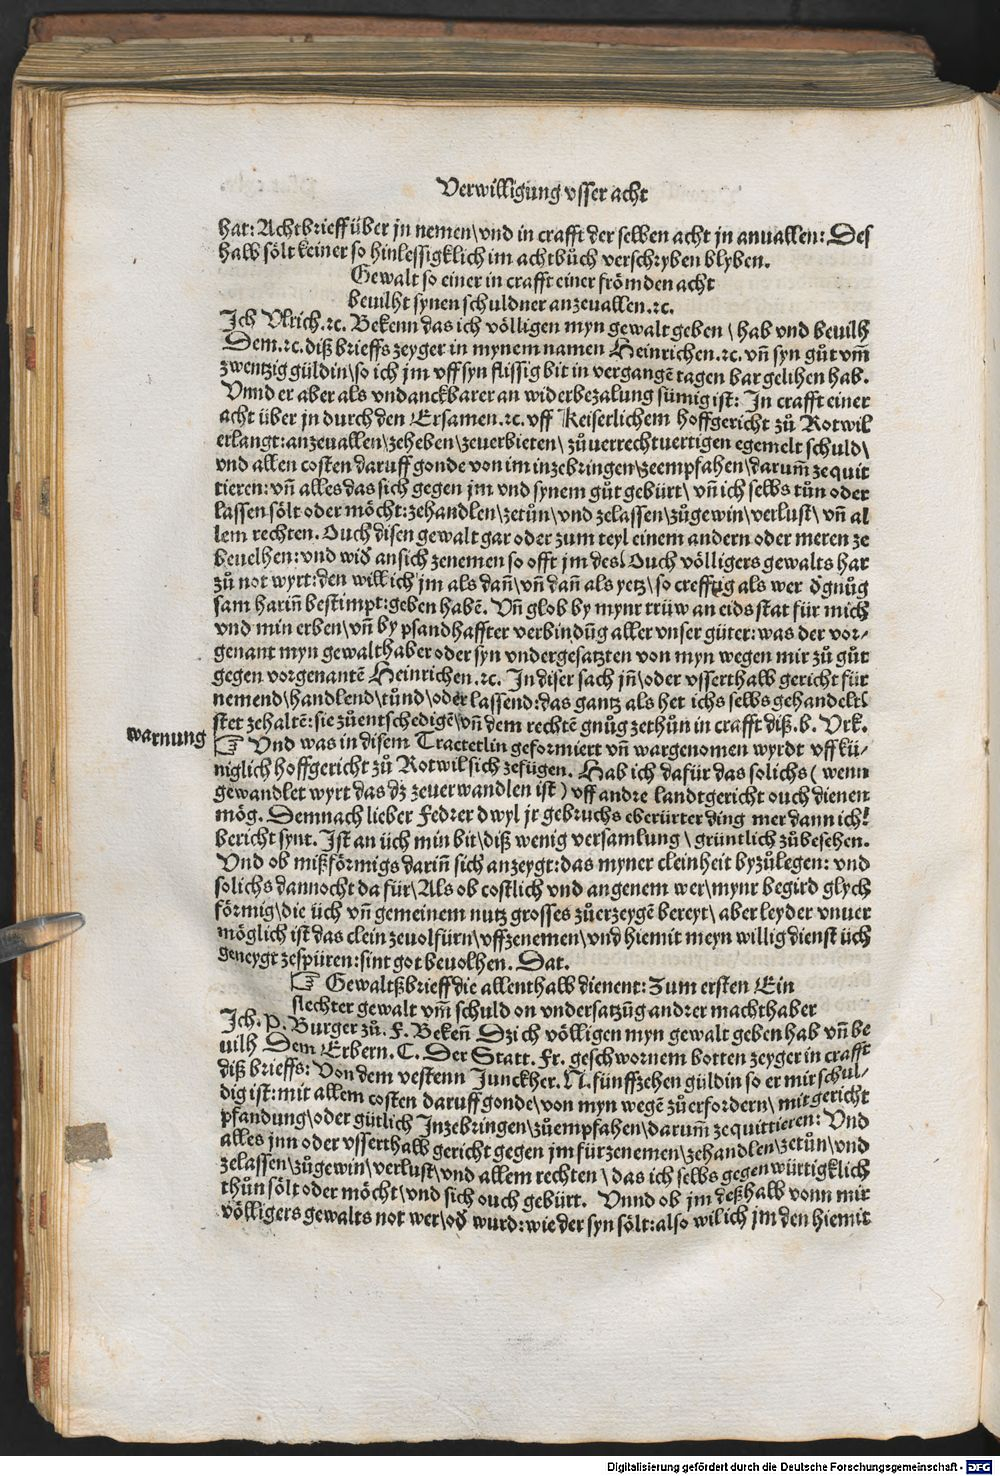 Verwilligung vsser acht
hat: Achtbrieff über jn nemen\ vnd in crafft der selben acht jn anuallen: Des
halb sölt keiner so hinlessigklich im achtbůch verschryben blyben.
Gewalt so einer in crafft einer frömden acht
beuilht synen schuldner anzeuallen.ꝛc.
Ich Vlrich.ꝛc. Bekenn das ich völligen myn gewalt geben \ hab vnd beuilh
Dem.ꝛc. diß brieffs zeyger in mynem namen Heinrichen.ꝛc. vñ syn gůt vm̃
zwentzig güldin\ so ich jm vff syn flissig bit in vergangẽ tagen bar gelihen hab.
Vnnd er aber als vndanckbarer an widerbezalung sümig ist: In crafft einer
acht über jn durch den Ersamen.ꝛc. vff Keiserlichem hoffgericht zů Rotwil
erlangt: anzeuallen\ zeheben\ zeuerbieten\ zůuerrechtuertigen egemelt schuld\
vnd allen costen daruff gonde von im inzebringen\ zeempfahen\ darum̃ zequit
tieren: vñ alles das sich gegen jm vnd synem gůt gebürt\ vñ ich selbs tůn oder
lassen sölt oder möcht: zehandlen\ zetůn\ vnd zelassen\ zůgewin\ verlust\ vñ al
lem rechten. Ouch disen gewalt gar oder zum teyl einem andern oder meren ze
beuelhen: vnd wiđ an sich zenemen so offt jm des( Ouch völligers gewalts har
zů not wyrt: den will ich jm als dañ\ vñ dañ als yetz\ so crefftig als wer đgnůg
sam hariñ bestimpt: geben habẽ. Vñ glob by mynr trüw an eids stat für mich
vnd min erben\ vñ by pfandhaffter verbindũg aller vnser güter: was der vor⸗
genant myn gewalthaber oder syn vndergesatzten von myn wegen mir zů gůt
gegen vorgenantẽ Heinrichen.ꝛc. In diser sach jñ\ oder vsserthalb gericht für
nemend\ handlend\ tůnd\ oder lassend: das gantz als het ichs selbs gehandelt(
stet zehaltẽ: sie zůentschedigẽ\ vñ dem rechtẽ gnůg zethůn in crafft diß.b. Vrk.
warnung
☞ Vnd was in disem Tractetlin geformiert vñ wargenomen wyrdt vff kü⸗
niglich hoffgericht zů Rotwil sich zefügen. Hab ich dafür das solichs ( wenn
gewandlet wyrt das dz zeuerwandlen ist ) vff andre landtgericht ouch dienen
mög. Demnach lieber Fedrer dwyl jr gebruchs eberürter ding mer dann ich!
bericht synt. Ist an üch min bit\ diß wenig versamlung \ grüntlich zůbesehen.
Vnd ob mißförmigs dariñ sich anzeygt: das myner cleinheit byzůlegen: vnd
solichs dannocht da für\ Als ob costlich vnd angenem wer\ mynr begird glych
förmig\ die üch vñ gemeinem nutz grosses zůerzeygẽ bereyt\ aber leyder vnuer
möglich ist das clein zeuolfürn\ vffzenemen\ vnd hiemit meyn willig dienst üch
geneygt zespüren: sint got beuolhen. Dat.
☞ Gewaltßbrieff die allenthalb dienent: Zum ersten Ein
slechter gewalt vm̃ schuld on vndersatzũg andrer machthaber
Ich. P. Burger zů. F. Bekeñ Dz ich völligen myn gewalt geben hab vñ be
uilh Dem Erbern. C. Der Statt. Fr. geschwornem botten zeyger in crafft
diß brieffs: Von dem vestenn Junckher. N. fünffzehen güldin so er mir schul⸗
dig ist: mit allem costen daruff gonde\ von myn wegẽ zůerfordern\ mit gericht
pfandung\ oder gütlich Inzebringen\ zůempfahen\ darum̃ zequittieren: Vnd
alles jnn oder vsserthalb gericht gegen jm fürzenemen\ zehandlen\ zetůn\ vnd
zelassen\ zůgewin\ verlust\ vnd allem rechten \ das ich selbs gegenwürtigklich
thůn sölt oder möcht\ vnd sich ouch gebürt. Vnnd ob jm deßhalb vonn mir
völligers gewalts not wer\ ođ wurd: wie der syn sölt: also wil ich jm den hiemit
Digitalisierung gefördert durch die Deutsche Forschungsgemeinschaft - DFG